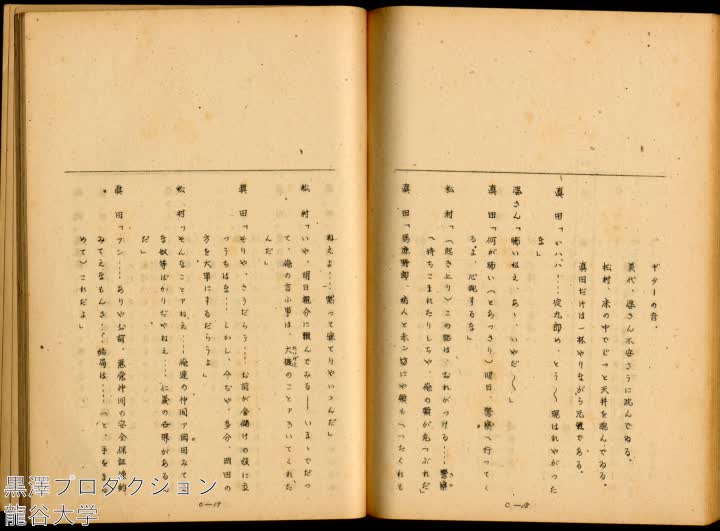 ギターの音。
美代、婆さん不安さうに沈んでゐる。
松村、床の中でじっと天井を睨んでゐる。
眞田だけは一杯やりながら元気である。
眞田「いハハハ……定九郎め、とう〱現はれやがった
な」
婆さん「怖いねえ、あゝ、いやだ〱」
眞田「何が怖い（とあっさり）明日、警察へ行ってく
るよ、心配するな」
松村「（起き上り）この話は、おれがつける……警察
へ持ちこまれたりしちゃ、俺の顔が丸つぶれだ」
眞田「馬鹿野郎、病人と赤ン坊にや顔もへったくれも
C—18
ねえよ……黙って寐てりやいゝんだ」
松村「いや、明日親分に頼んでみる――いまゝでだっ
て、俺の言ふ事は、大概のことァきいてくれた
んだ」
眞田「そりや、さうだらう……お前が金儲けの役に立
つうちはな……しかし、今ぢや、多分、岡田の
方を大事にするだらうよ」
松村「そんなことァねえ……俺達の仲間ァ岡田みて
な奴等ばかりぢやねえ……仁義の世界がある
だ」
眞田「フン……ありやお前、悪党仲間の安全保証
みてえなもんさ……結局は……（と、手をまる
めて）これだよ」
C—19
黒澤プロダクション
龍谷大学